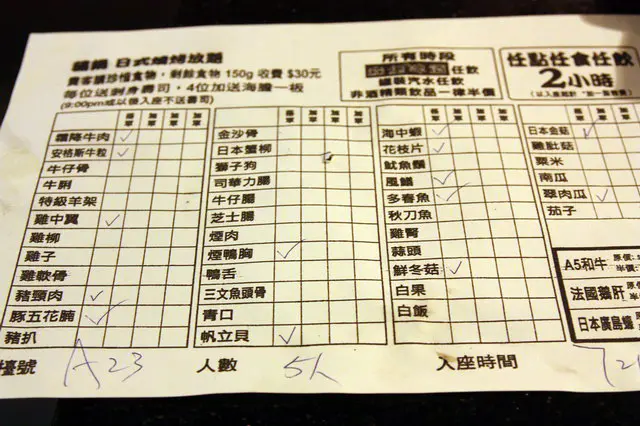 日式爐烤放題
貴客請珍惜食物，剩餘食物 150g 收費 $30元
每位送刺身壽司，4位加送海膽一板
(9:00pm或以後入座不送壽司)
所有時段
任飲
罐裝汽水任飲
非酒精類飲品一律半價
任點任食任飲
2小時
霜降牛肉
安格斯牛粒
牛仔骨
牛脷
特級羊架
雞中翼
雞柳
雞子
雞軟骨
豬頸肉
豚五花腩
豬扒
金沙骨
日本蟹柳
獅子狗
司華力腸
牛仔腸
芝士腸
煙肉
煙鴨胸
鴨舌
三文魚頭骨
青口
帆立貝
海中蝦
花枝片
魷魚鬚
風鱔
多春魚
秋刀魚
雞腎
蒜頭
鮮冬菇
白果
白飯
日本金菇
雞肶菇
粟米
南瓜
翠肉瓜
茄子
A5和牛
原價:
半價
法國鵝肝
原價
半價
日本廣島蠔
檯號 A23
人數 5人
入座時間